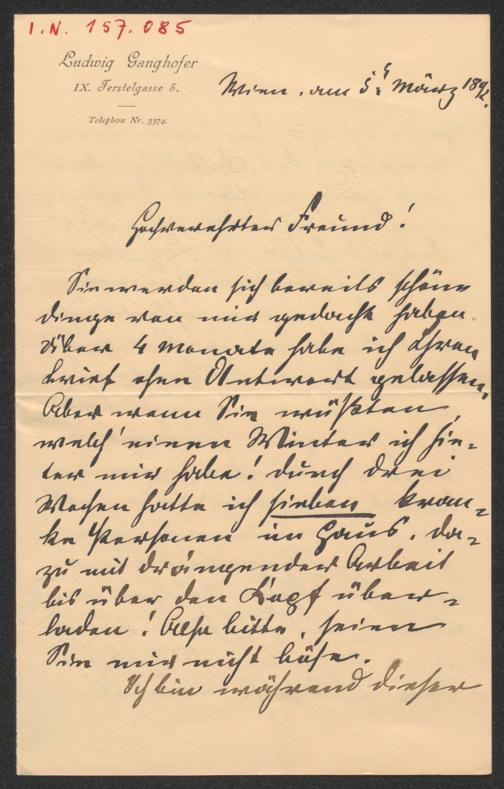 I.N. 157.085
Ludwig Ganghofer
IX. Ferstelgasse 5.
Telephon Nr. 3374.
Wien, am 5. März 1892.
Hochverehrter Freund!
Sie werden sich bereits schöne
Dinge von mir gedacht haben.
Über 4 Monate habe ich Ihren
Brief ohne Antwort gelassen.
Aber wenn Sie wüßten,
welch' einen Winter ich hin-
ter mir habe! Durch drei
Wochen hatte ich sieben kran-
ke Personen im Haus, da-
zu mit drängender Arbeit
bis über den Kopf über-
laden! Also bitte, seien
Sie mir nicht böse.
Ich bin während dieser